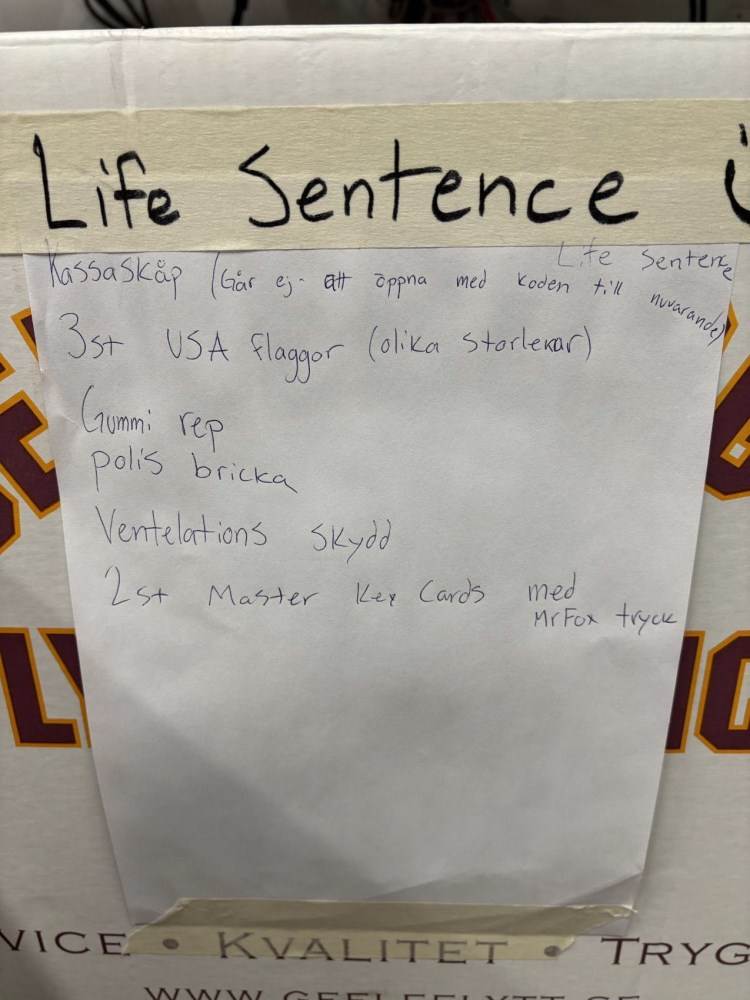 Life Sentence
Life Sentence
Kassaskåp (Går ej att öppna med koden till nuvarande)
3st USA flaggor (olika storlekar)
Gummi rep
polis bricka
Ventelations skydd
2st Master Key Cards med
MrFox tryck
LY
VICE • KVALITET • TRYG